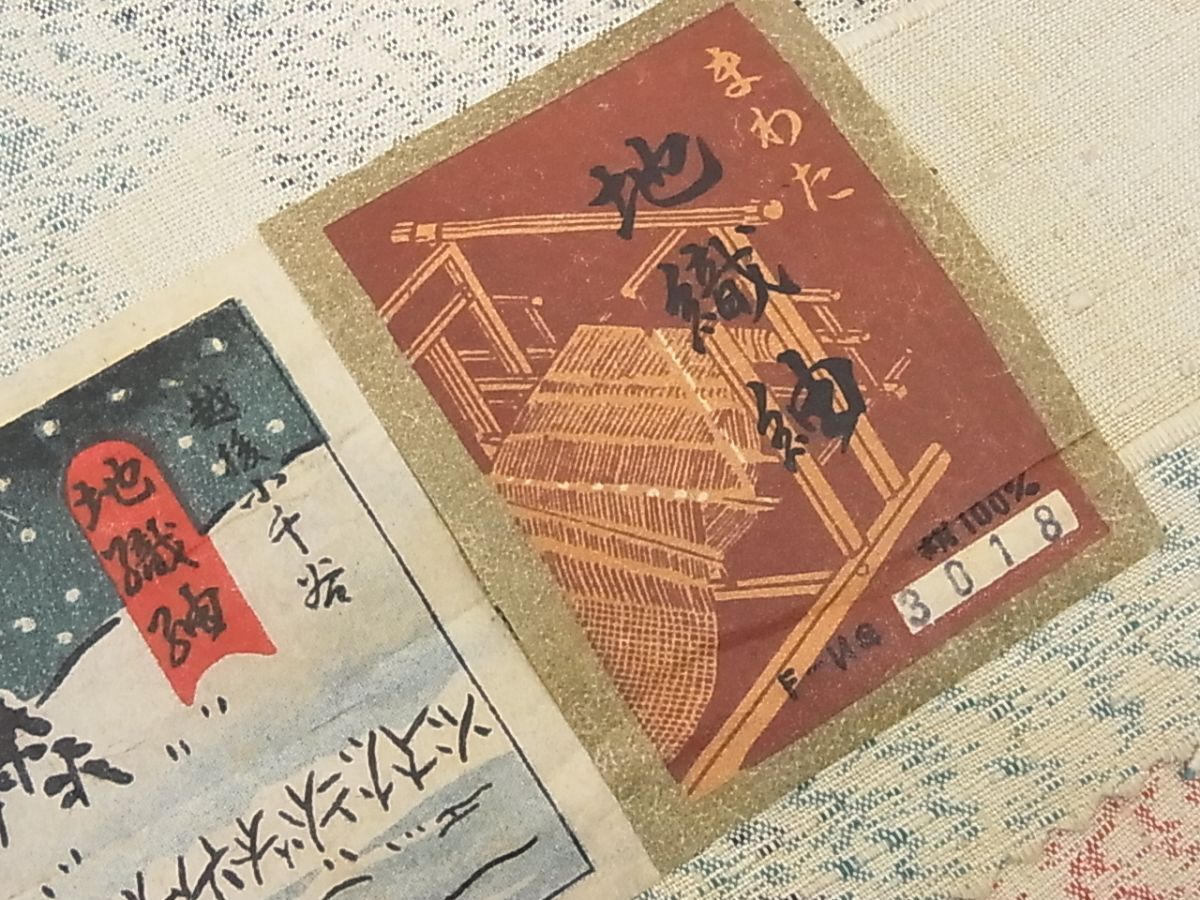 まわた
地織紬
絹100%
3018
越後小千谷
地織紬